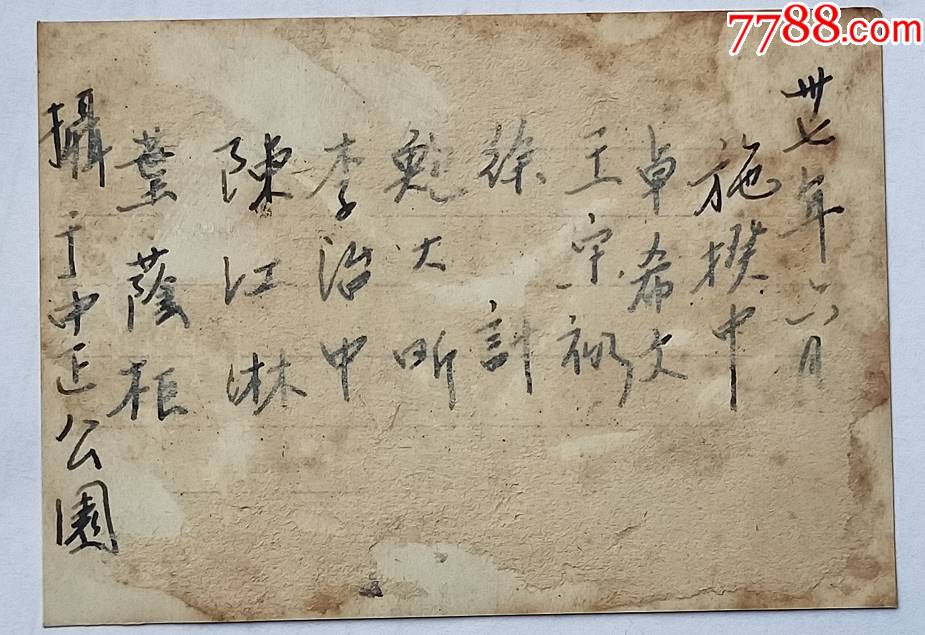 7788.com
卅七年六月
施揆中
卓希文
王宇
徐計
鮑大昕
李治中
陳江淋
葉蔭柜
攝于中正公園